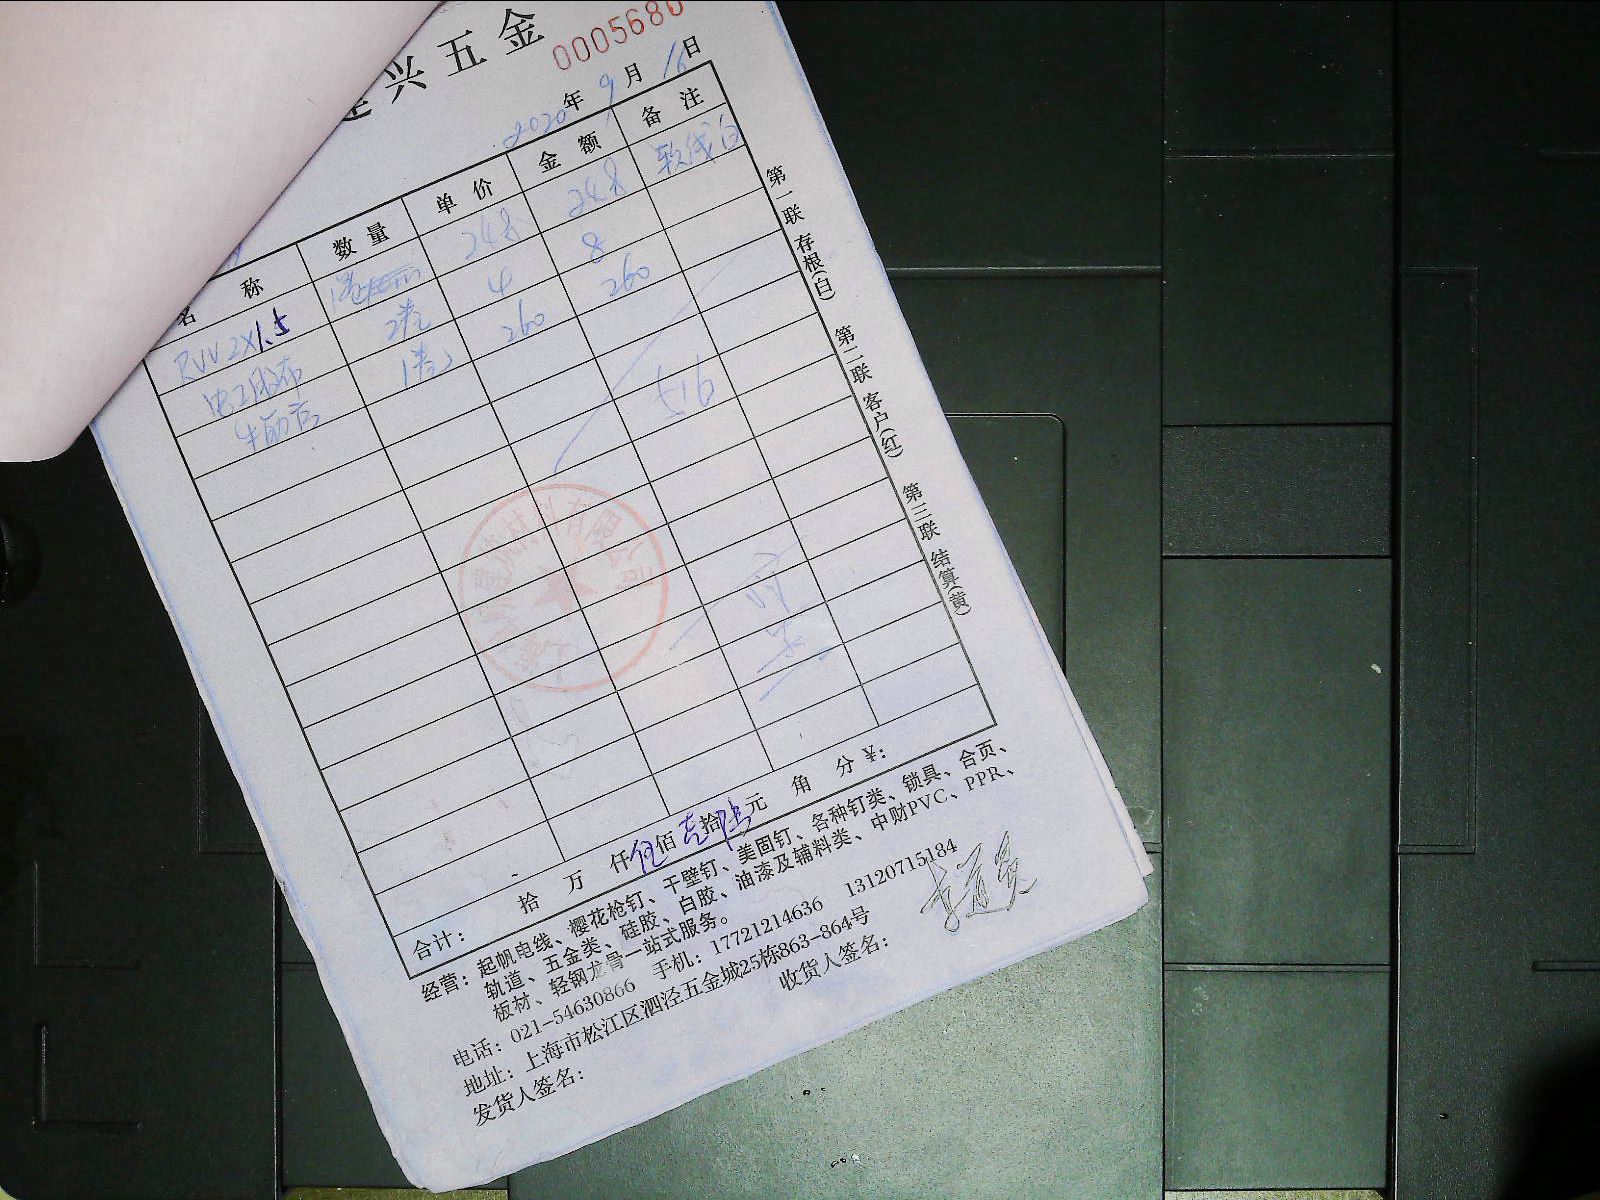 兴五金
0005680
2020年9月16日
名称 数量 单价 金额 备注
RVV 2X1.5 248 248 软线白
电工胶布 2卷 4 8
牛筋管 1卷 260 260
516
合计： 拾 万 仟伍佰壹拾陆元 角 分 ¥：
经营：起帆电线、樱花枪钉、干壁钉、美固钉、各种钉类、锁具、合页、
轨道、五金类、硅胶、白胶、油漆及辅料类、中财PVC、PPR、
板材、轻钢龙骨一站式服务。
电话：021-54630866 手机：17721214636 13120715184
地址：上海市松江区泗泾五金城25栋863-864号
发货人签名： 收货人签名：
第一联 存根(白) 第二联 客户(红) 第三联 结算(黄)